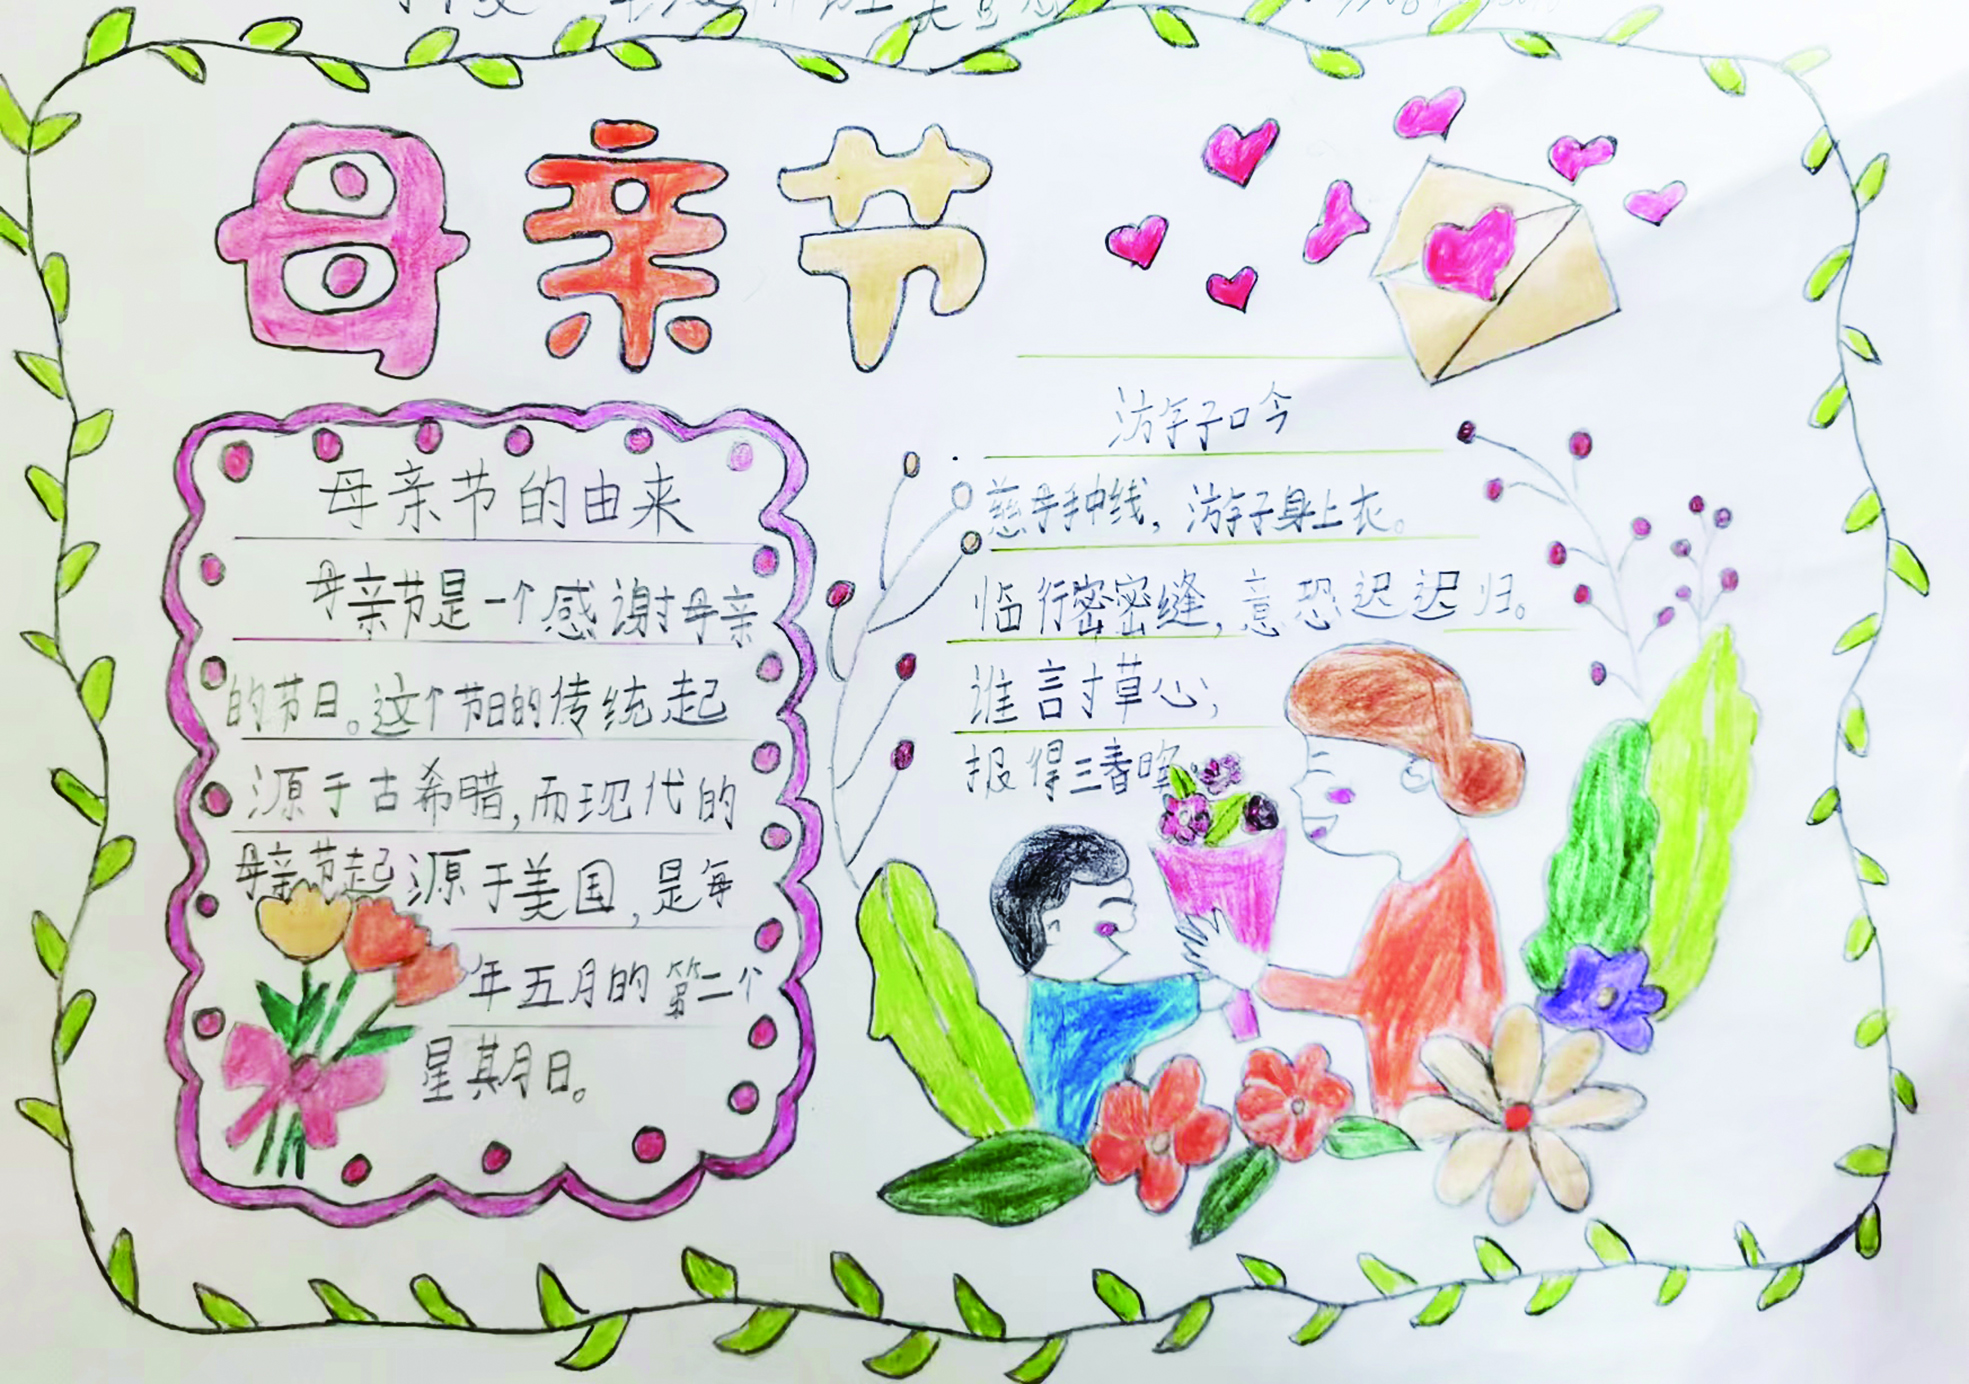 母亲节
母亲节的由来
母亲节是一个感谢母亲
的节日。这个节日的传统起
源于古希腊,而现代的
母亲节起源于美国,是每
年五月的第二个
星期日。
游子吟
慈母手中线,游子身上衣。
临行密密缝,意恐迟迟归。
谁言寸草心;
报得三春晖